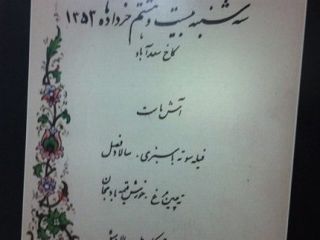 سه شنبه بیست و هشتم خرداد ماه ۱۳۵۳
کاخ سعدآباد
آتش مات
فیله سوته با سبزی . سالاد فصل
ته چین مرغ . خورش قیمه بادنجان